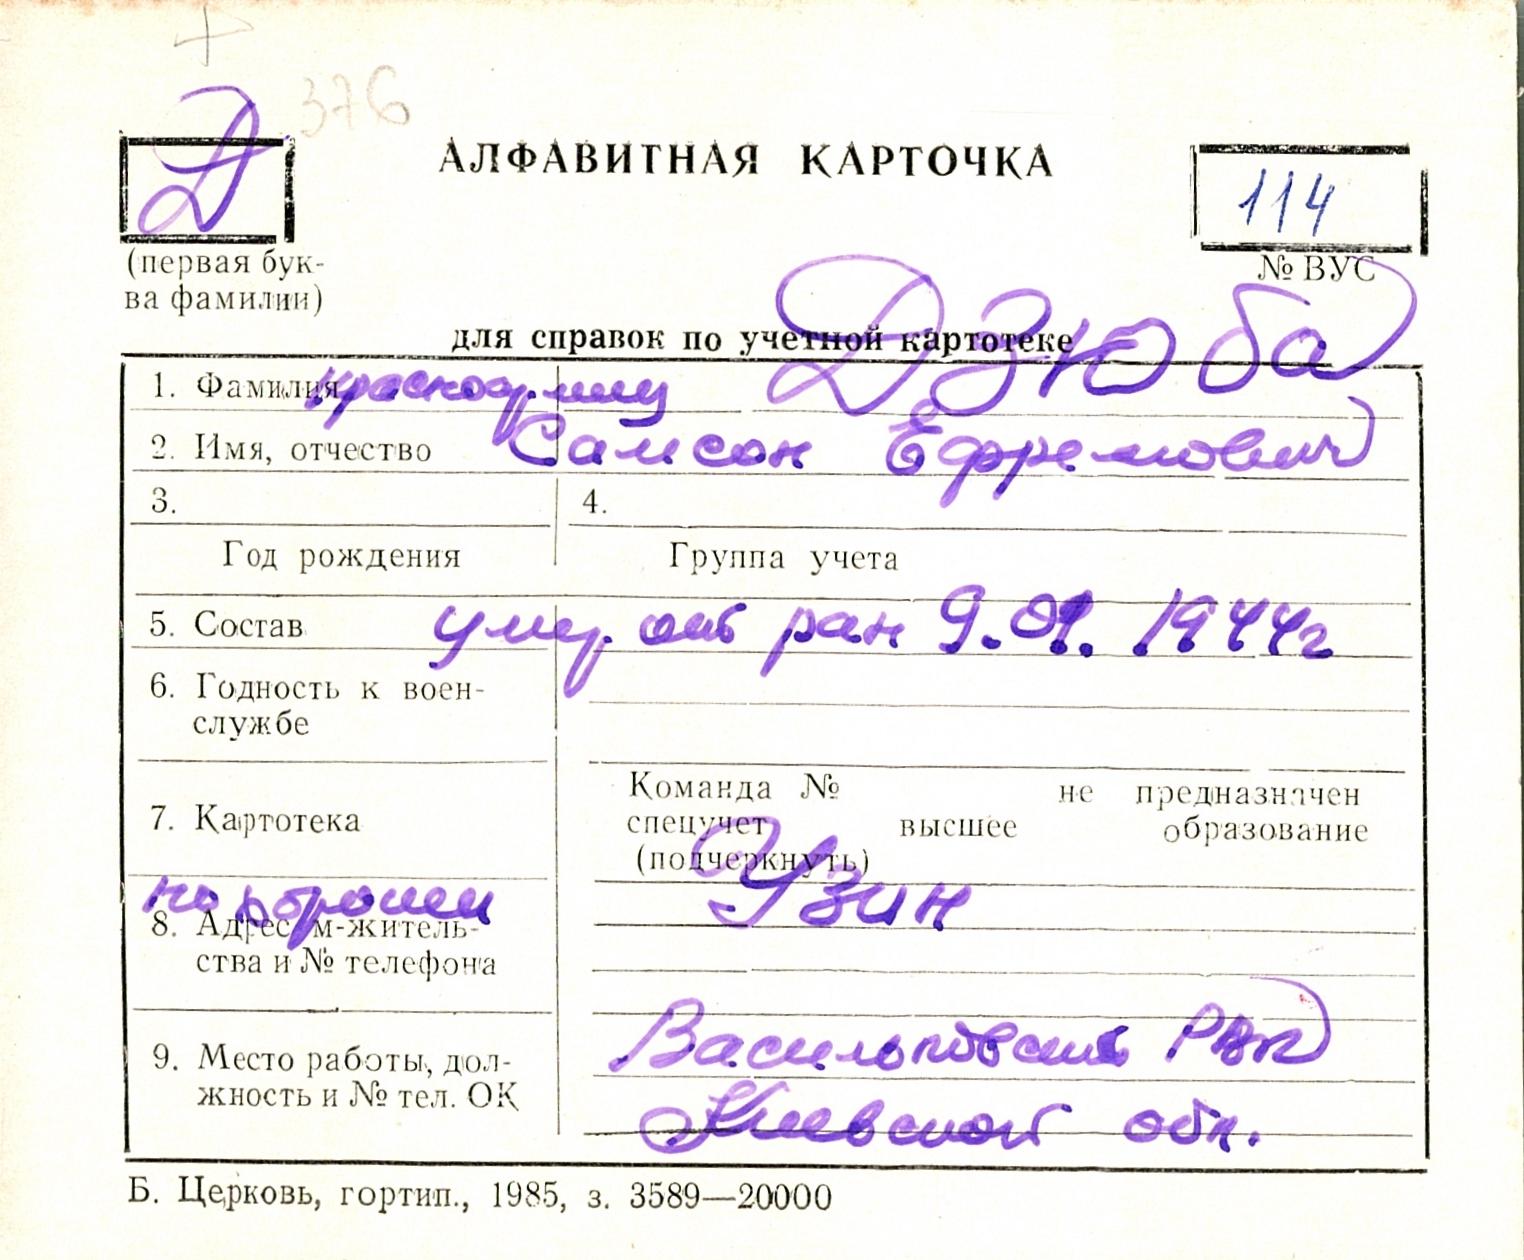 376
Д
АЛФАВИТНАЯ КАРТОЧКА
114
(первая бук-
ва фамилии)
№ ВУС
для справок по учетной картотеке
Дзюба
1. Фамилия
красноармец
2. Имя, отчество Самсон Ефремович
3. 4.
Год рождения Группа учета
5. Состав умер от ран 9.01.1944г
6. Годность к воен-
службе
Команда № не предназначен
7. Картотека
спецучет высшее образование
(подчеркнуть)
похоронен Узин
8. Адрес м-житель-
ства и № телефона
Васильковский РВК
9. Место работы, дол-
жность и № тел. ОК
Киевской обл.
Б. Церковь, гортип., 1985, з. 3589—20000